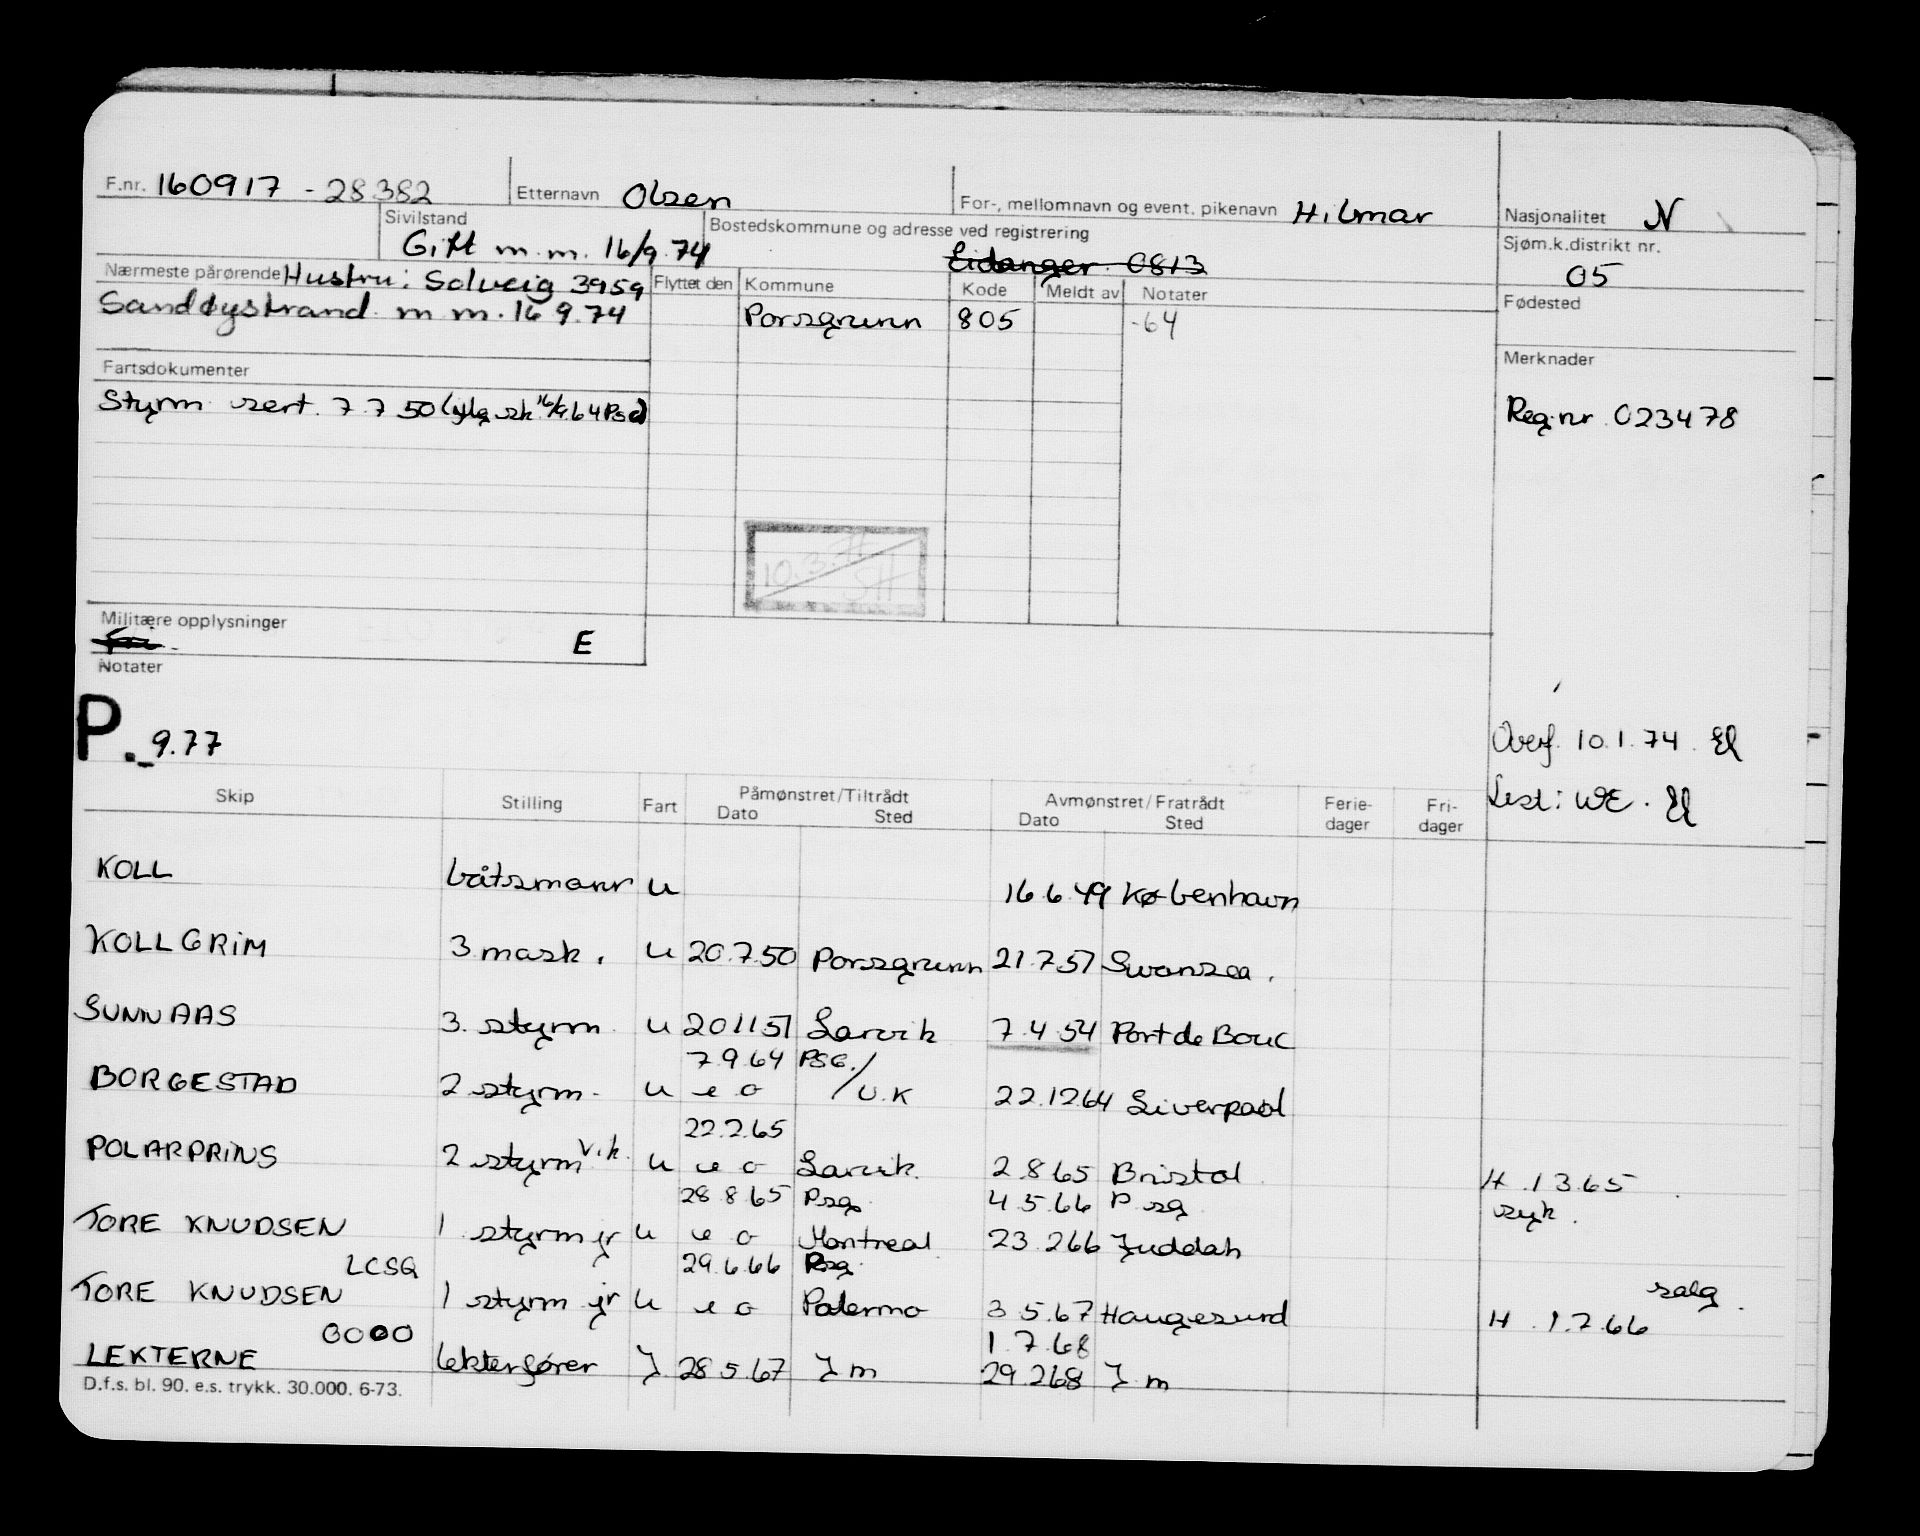 F.nr. 160917 - 28382 Etternavn Olsen For-, mellomnavn og event. pikenavn Hilmar Nasjonalitet N
Sivilstand Gift m.m. 16/9.74 Bostedskommune og adresse ved registrering Eidanger 0813 Sjøm.k.distrikt nr. 05
Nærmeste pårørende Hustru: Solveig 3959 Flyttet den Kommune Kode Meldt av Notater Fødested
Sandøystrand m.m. 16 9.74 Porsgrunn 805 -64
Fartsdokumenter Merknader
Styrm sert. 7 7 50 Reg.nr. 023478
10.3. SH
Militære opplysninger
E
Notater
P. 9.77
Overf. 10.1.74. El
Lest: WE. El
Skip Stilling Fart Påmønstret/Tiltrådt Dato Sted Avmønstret/Fratrådt Dato Sted Ferie-dager Fri-dager
KOLL båtsmann u 16.6.49 København
KOLLGRIM 3 mask. u 20.7.50 Porsgrunn 21.7.51 Swansea.
SUNNAAS 3. styrm. u 201151 Larvik 7.4 54 Port de Bouc
7.9.64 PSG./
BORGESTAD 2 styrm. u e o U.K 22.1264 Liverpool
22.2.65
POLARPRINS 2 styrm v.k. u e o Larvik. 2.8.65 Bristol H .1 3.65
28 8.65 Psg. 4.5.66 P sg syk.
TORE KNUDSEN 1 styrm jr u e o Montreal 23.266 Juddah
LCSQ 29.6.66 Psg.
salg.
TORE KNUDSEN 1 styrm jr u e o Palermo 3 5.67 Haugesund H .1.7.66
0000 1.7.68
LEKTERNE lekterfører J 28.5.67 J m 29.268 J m
D.f.s. bl. 90. e.s. trykk. 30.000. 6-73.